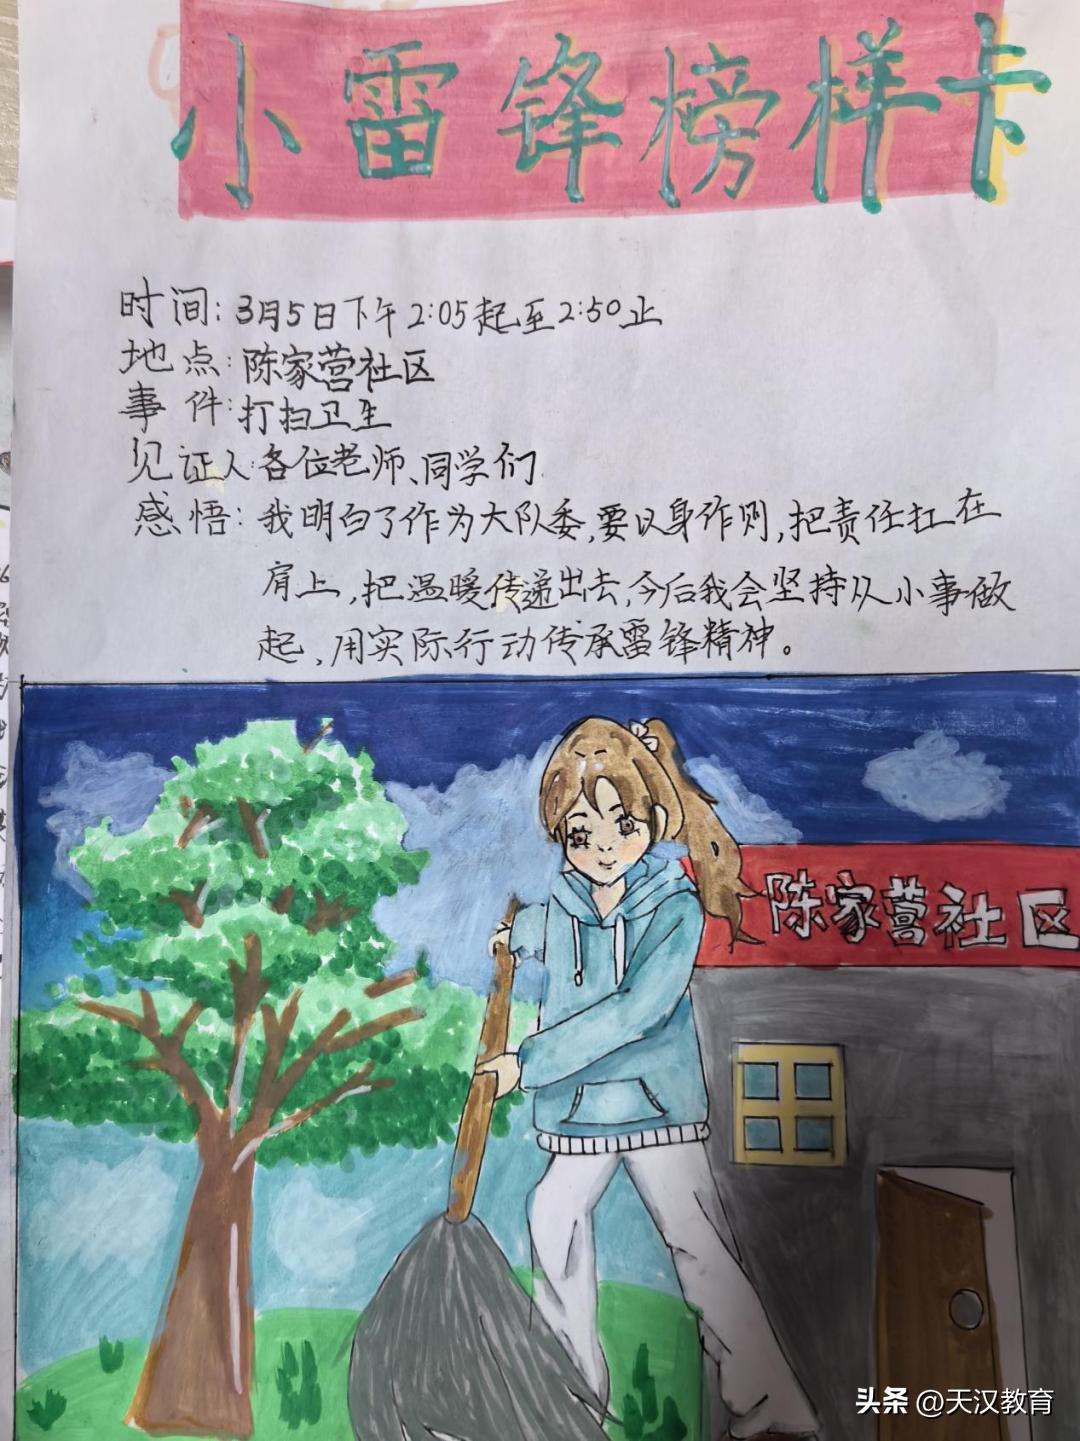 小雷锋榜样卡
时间:3月5日下午2:05起至2:50止
地点:陈家营社区
事件:打扫卫生
见证人:各位老师、同学们
感悟:我明白了作为大队委,要以身作则,把责任扛在
肩上,把温暖传递出去,今后我会坚持从小事做
起,用实际行动传承雷锋精神。
陈家营社区
头条 @天汉教育